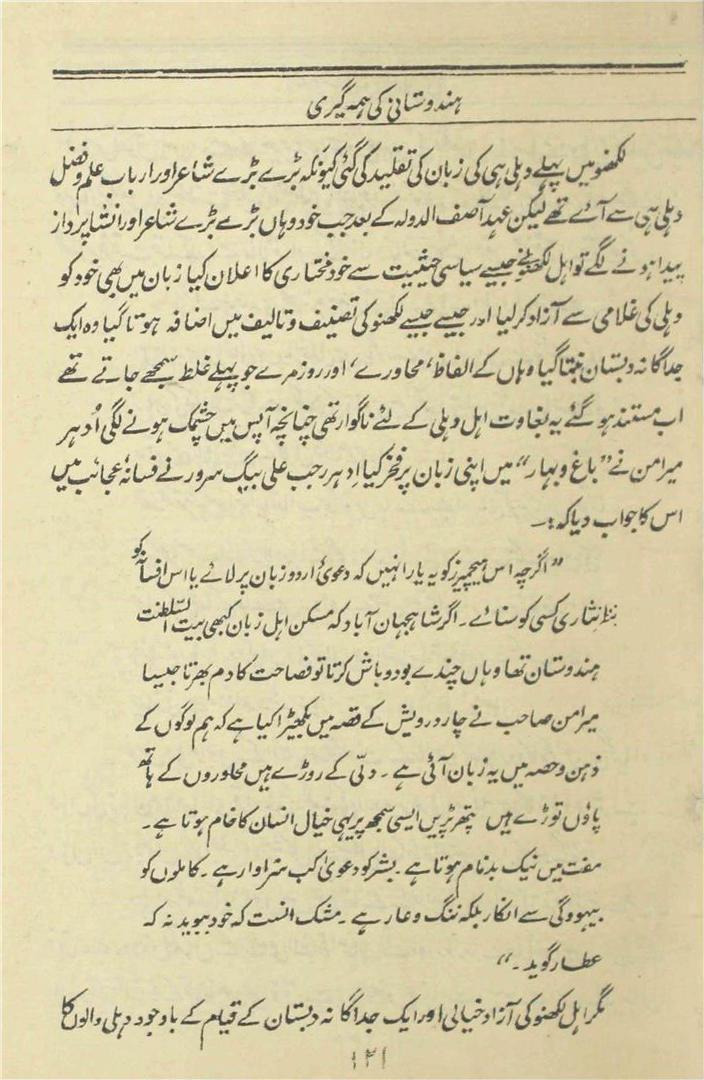 ہندوستانی کی ہمہ گیری
لکھنؤ میں پہلے دہلی ہی کی زبان کی تقلید کی گئی کیونکہ بڑے بڑے شاعر اور ارباب علم و فضل
دہلی ہی سے آئے تھے لیکن عہد آصف الدولہ کے بعد جب خود وہاں بڑے بڑے شاعر اور انشا پرداز
پیدا ہونے لگے تو اہل لکھنؤ نے جیسے سیاسی حیثیت سے خود مختاری کا اعلان کیا زبان میں بھی خود کو
دہلی کی غلامی سے آزاد کر لیا اور جیسے جیسے لکھنو کی تصنیف و تالیف میں اضافہ ہوتا گیا وہ ایک
جداگانہ دبستان بنتا گیا وہاں کے الفاظ، محاورے، اور روزمرے جو پہلے غلط سمجھے جاتے تھے
اب مستند ہو گئے یہ بغاوت اہل دہلی کے لئے ناگوار تھی چنانچہ آپس میں چشمک ہونے لگی اُدہر
میرامن نے ”باغ و بہار“ میں اپنی زبان پر فخر کیا اِدہر رجب علی بیگ سرور نے فسانۂ عجائب میں
اس کا جواب دیا کہ:۔
”اگرچہ اس ہیچمیرز کو یہ یارا نہیں کہ دعویٰ اردو زبان پر لائے یا اس افسانہ کو
بنظر نثاری کسی کو سنائے۔ اگر شاہجہان آباد کہ مسکن اہل زبان کبھی بیت السّلطنت
ہندوستان تھا وہاں چندے بود و باش کرتا تو فصاحت کا دم بھرتا جیسا
میرامن صاحب نے چار درویش کے قصہ میں بکھیڑا کیا ہے کہ ہم لوگوں کے
ذہن و حصہ میں یہ زبان آئی ہے۔ دلّی کے روڑے ہیں محاوروں کے ہاتھ
پاؤں توڑے ہیں پتھر پڑیں ایسی سمجھ پر یہی خیال انسان کا خام ہوتا ہے۔
مفت میں نیک بدنام ہوتا ہے۔ بشر کو دعویٰ کب سزاوار ہے۔ کاملوں کو
بیہودگی سے انکار بلکہ ننگ و عار ہے۔ مشک آنست کہ خود ببوید نہ کہ
عطار گوید۔“
مگر اہل لکھنو کی آزاد خیالی اور ایک جداگانہ دبستان کے قیام کے باوجود دہلی والوں کا
۱۴۱